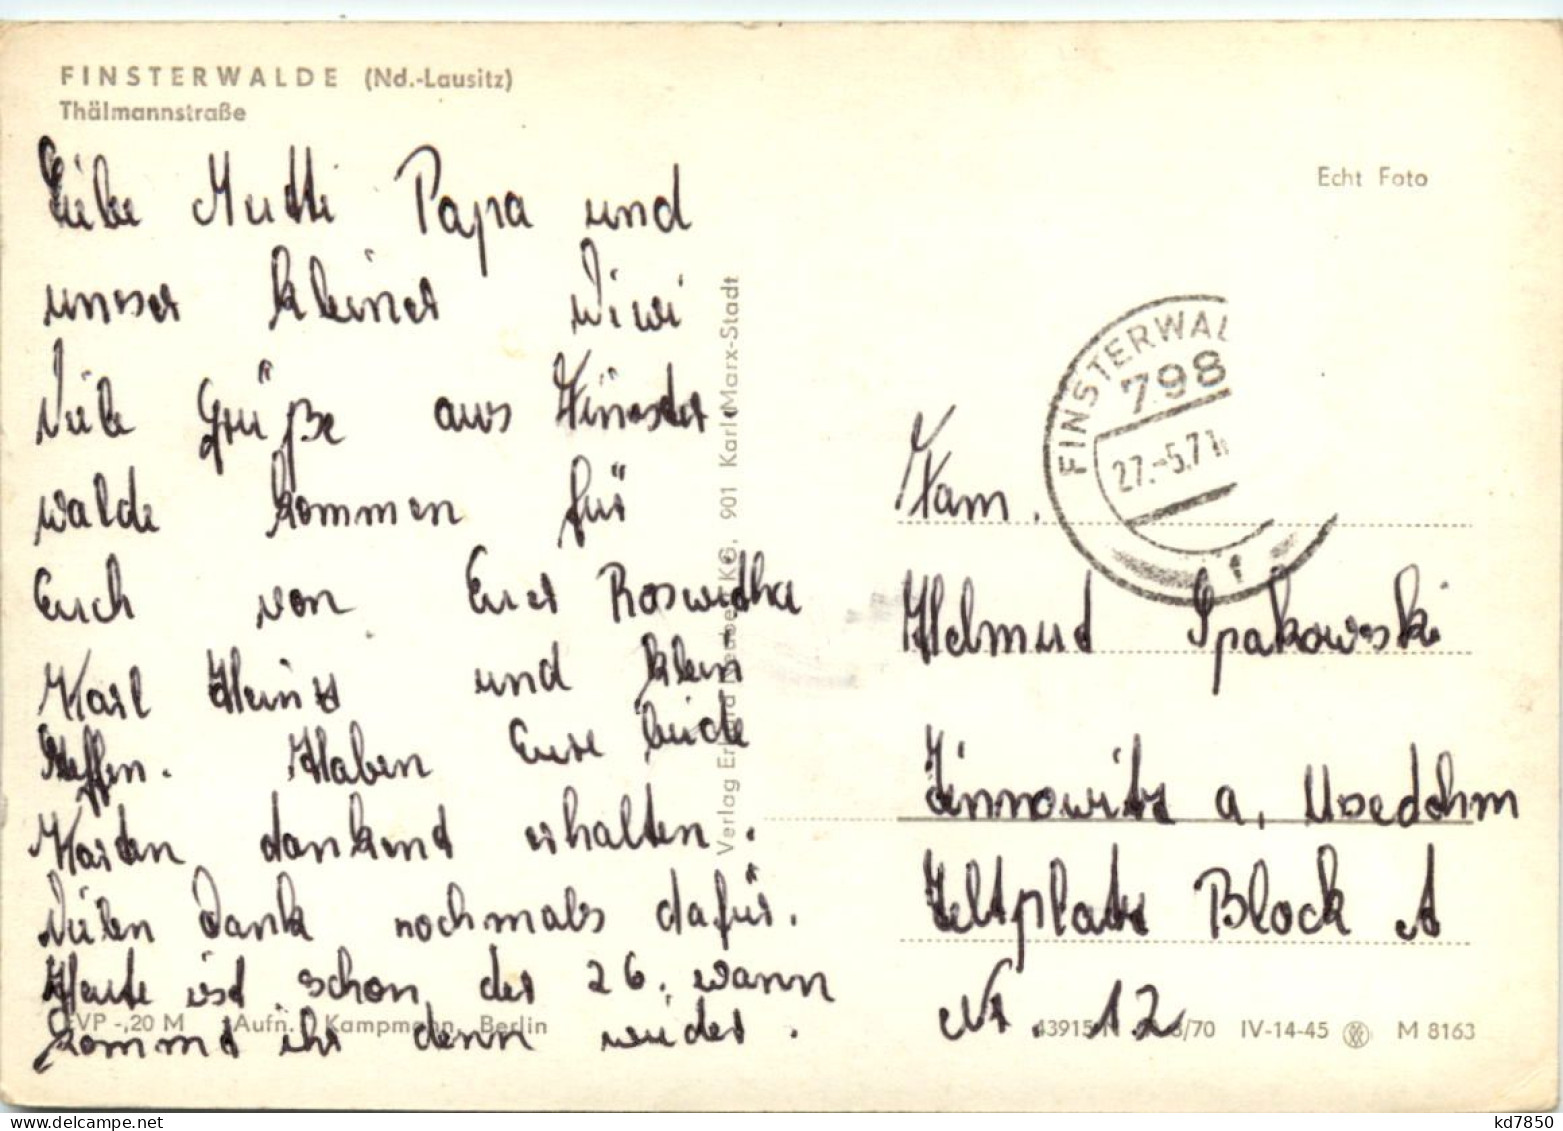 FINSTERWALDE (Nd.-Lausitz)
Thälmannstraße
Liebe Mutti Papa und
unser kleiner Wiwi
Viele Grüße aus Finster
walde kommen für
Euch von Eurer Roswitha
Karl Heinz und klein
Steffen. Haben Eure beide
Karten dankend erhalten.
Vielen Dank nochmals dafür.
Heute ist schon der 26. wann
kommt ihr denn wieder.
EVP -,20 M Aufn.: Kampmann, Berlin
Verlag KG, 901 Karl-Marx-Stadt
Echt Foto
FINSTERWAL
798
27.-5.71
f
Fam.
Helmud Spakowski
Zinnowitz a. Usedohm
Zeltplatz Block A
Nr. 12
8/70 IV-14-45 M 8163
kd7850